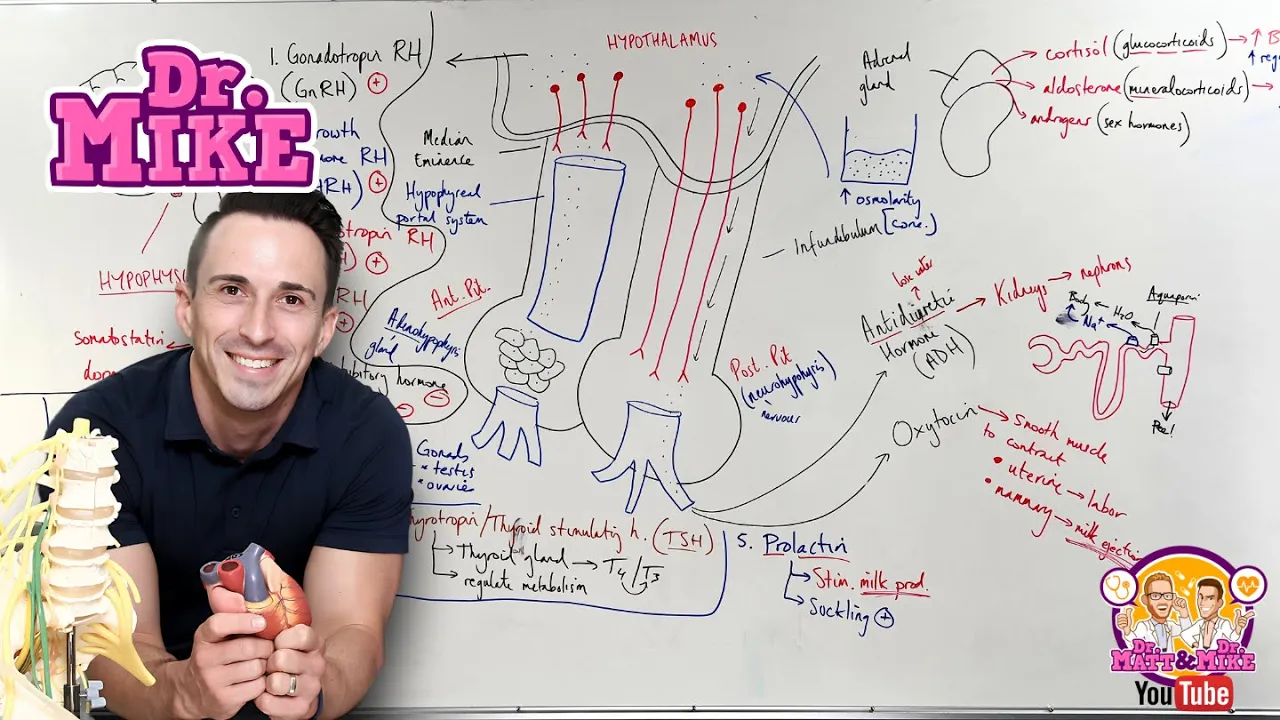 Dr.
MIKE
1. Gonadotropin RH
(GnRH) +
RH
RH) +
RH
+
RH
+
HYPOPHYS
Somatostatin
hormone
Gonads
* testis
* ovaries
HYPOTHALAMUS
Median
Eminence
Hypophyseal
portal system
Ant. Pit.
Adenohypophysis
gland
Infundibulum
Post. Pit
(neurohypophysis)
nervous
Adrenal
gland
↑ osmolarity
[conc.]
cortisol (glucocorticoids) → ↑ B
aldosterone (mineralocorticoids) →
androgens (sex hormones)
lose water
Antidiuretic
Hormone
(ADH)
→ Kidneys → nephrons
Body ← H₂O
Na⁺
Aquaporin
Pee!
Oxytocin → smooth muscle
to contract
• uterine → labor
• mammary → milk ejection
yrotropin/Thyroid stimulating h. (TSH)
Thyroid gland → T4/T3
regulate metabolism
5. Prolactin
Stim. milk prod.
Suckling +
Dr. Dr.
MATT & MIKE
YouTube